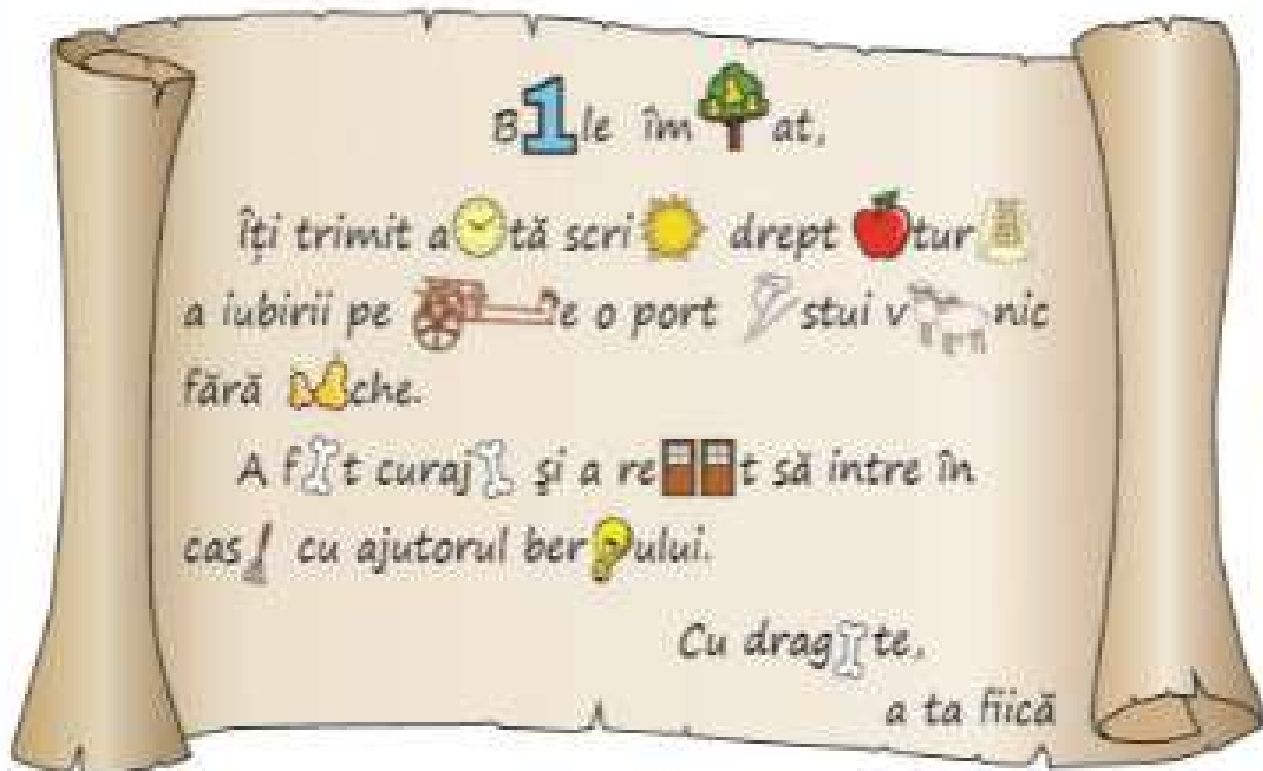 B1le îm at,
Îți trimit a tă scri drept tur
a iubirii pe e o port stui v nic
fără che.
A f t curaj și a re t să intre în
cas cu ajutorul ber ului.
Cu drag te,
a ta fiică